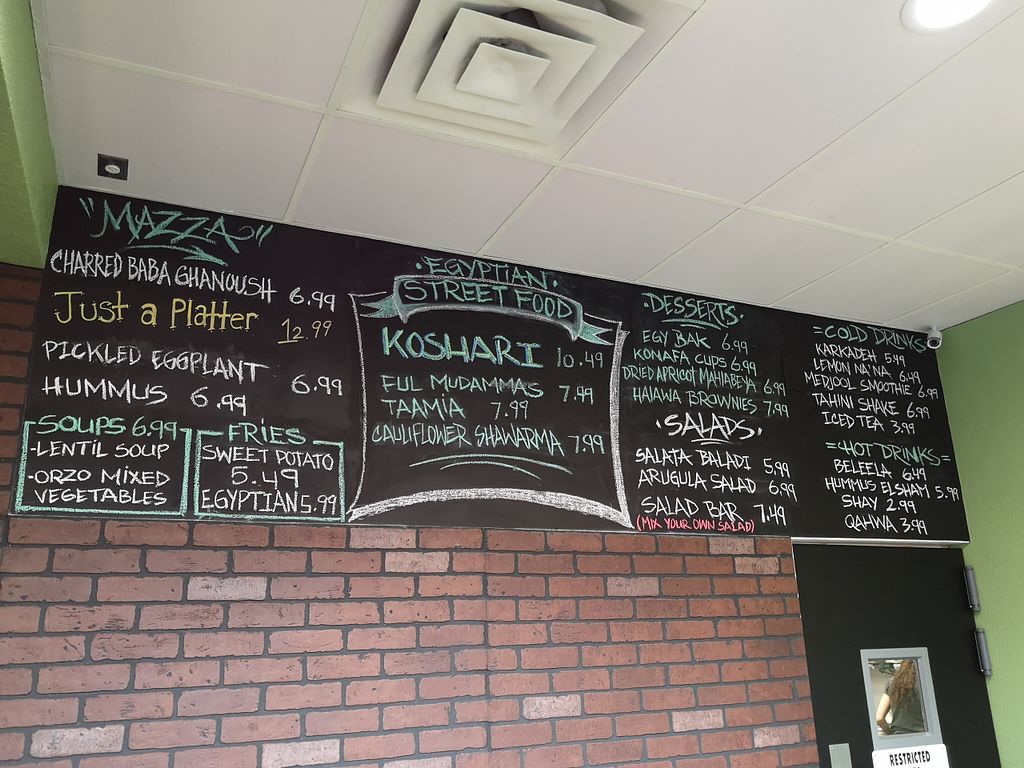 "MAZZA"
CHARRED BABA GHANOUSH 6.99
Just a Platter 12.99
PICKLED EGGPLANT 6.99
HUMMUS 6.99
SOUPS 6.99
-LENTIL SOUP
-ORZO MIXED
VEGETABLES
FRIES
SWEET POTATO
5.49
EGYPTIAN 5.99
·EGYPTIAN·
STREET FOOD
KOSHARI 10.49
FUL MUDAMMAS 7.99
TAAMIA 7.99
CAULIFLOWER SHAWARMA 7.99
·DESSERTS·
EGY BAK 6.99
KONAFA CUPS 6.99
DRIED APRICOT MAHLABEYA 6.99
HALAWA BROWNIES 7.99
·SALADS·
SALATA BALADI 5.99
ARUGULA SALAD 6.99
SALAD BAR 7.49
(MIX YOUR OWN SALAD)
=COLD DRINKS=
KARKADEH 5.49
LEMON NA'NA 6.49
MEDJOOL SMOOTHIE 6.99
TAHINI SHAKE 6.99
ICED TEA 3.99
=HOT DRINKS=
BELEELA 6.49
HUMMUS ELSHAM 5.99
SHAY 2.99
QAHWA 3.99
RESTRICTED